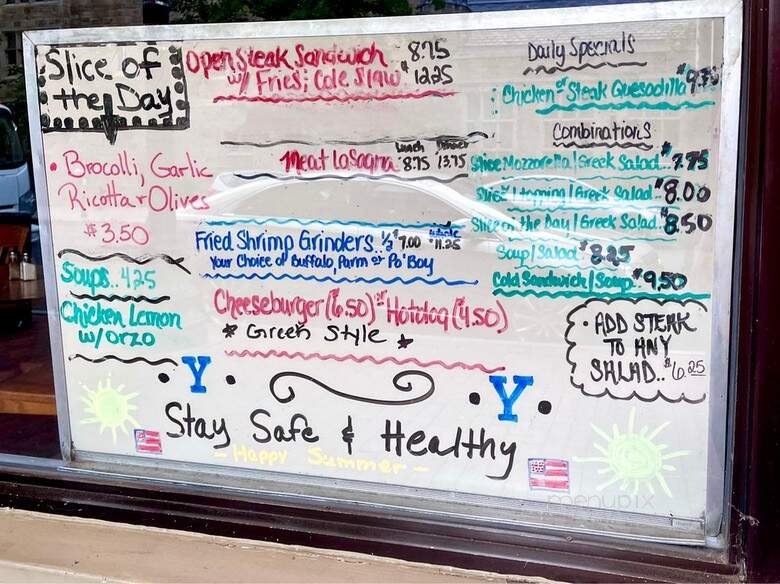 Slice of
the Day
• Brocolli, Garlic
Ricotta + Olives
$3.50
Soups.. 4.25
Chicken Lemon
w/ Orzo
Open Steak Sandwich 8.75
w/ Fries; Cole Slaw 12.25
Lunch Dinner
Meat Lasagna 8.75 13.75
Fried Shrimp Grinders.. ½ $7.00 whole $11.25
Your Choice of Buffalo, Parm or Po' Boy
Cheeseburger (6.50) or Hotdog (4.50)
* Greek Style *
Daily Specials
Chicken or Steak Quesadilla $9.75
Combinations
Slice Mozzarella / Greek Salad.. $7.75
Slice 1 topping / Greek Salad.. $8.00
Slice of the Day / Greek Salad.. $8.50
Soup / Salad $8.25
Cold Sandwich / Soup.. $9.50
• ADD STEAK
TO ANY
SALAD.. $6.25
• Y •
• Y •
Stay Safe & Healthy
- Happy Summer -
menupix